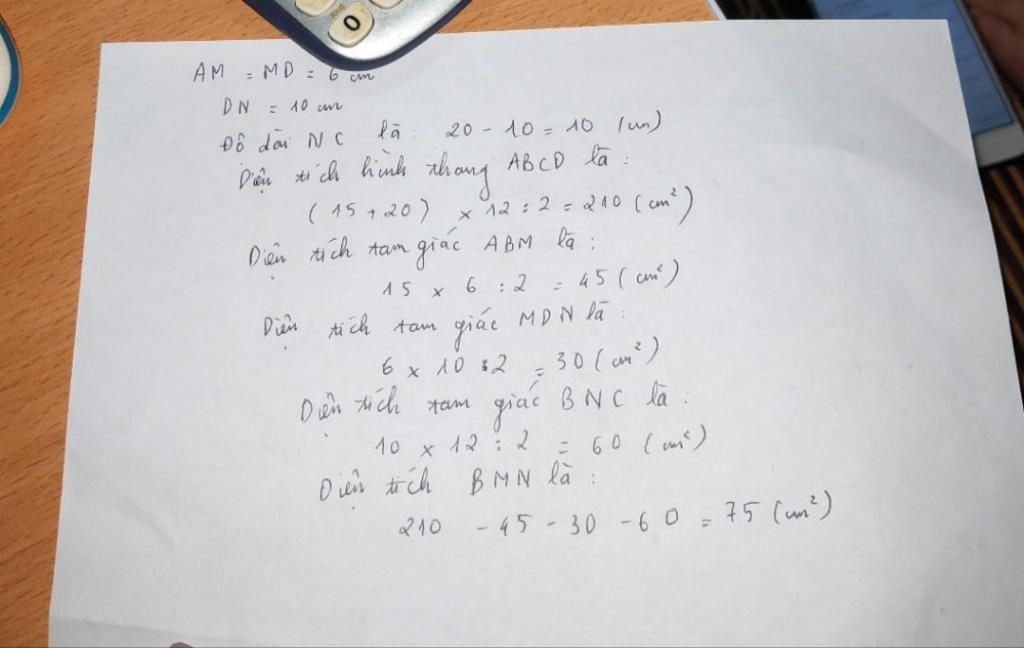 0
AM = MD = 6 cm
DN = 10 cm
Độ dài NC là : 20 - 10 = 10 (cm)
Diện tích hình thang ABCD là :
( 15 + 20 ) x 12 : 2 = 210 (cm²)
Diện tích tam giác ABM là :
15 x 6 : 2 = 45 (cm²)
Diện tích tam giác MDN là :
6 x 10 : 2 = 30 (cm²)
Diện tích tam giác BNC là :
10 x 12 : 2 = 60 (cm²)
Diện tích BMN là :
210 - 45 - 30 - 60 = 75 (cm²)